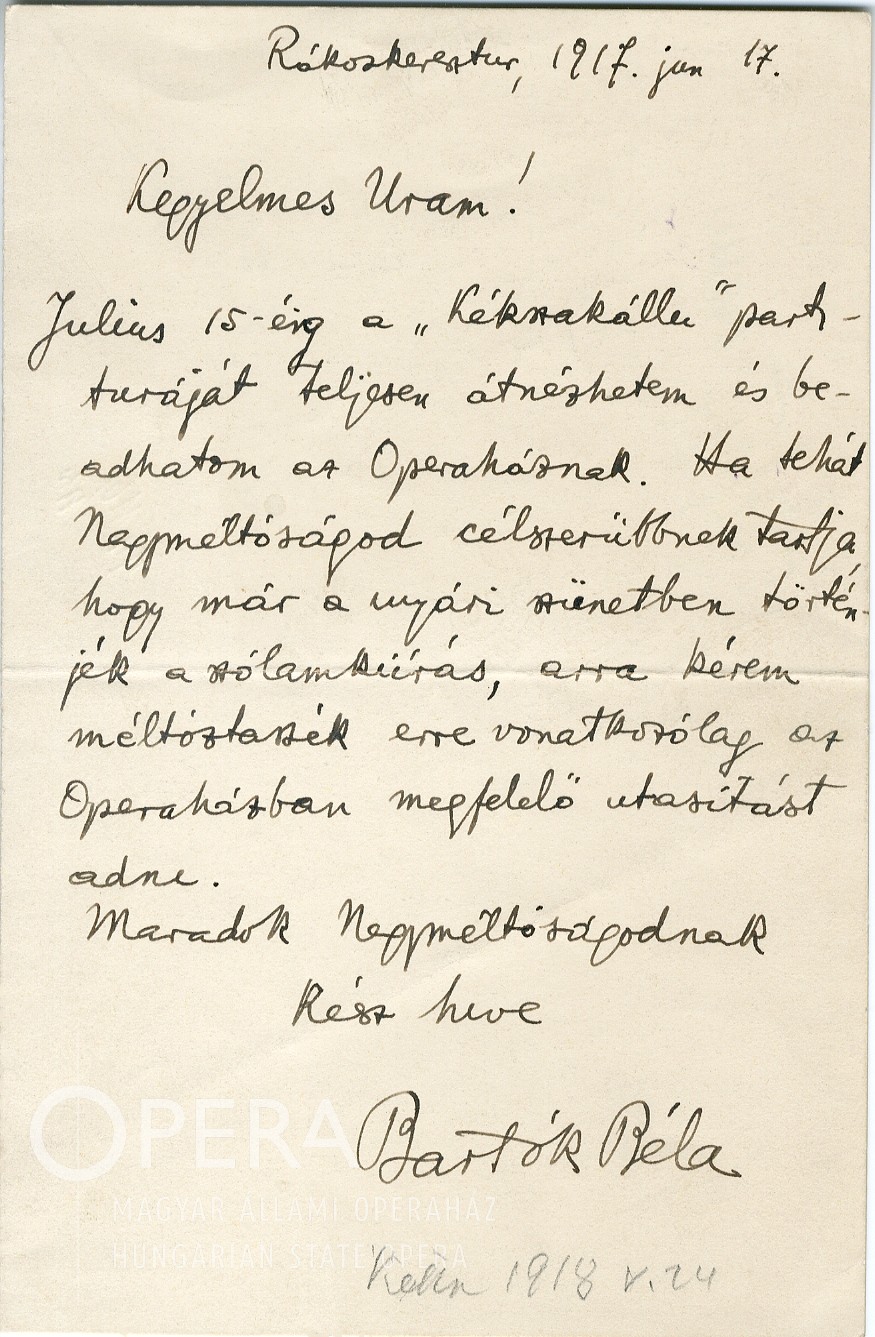 Rákoskeresztur, 1917. jun 17.
Kegyelmes Uram!
Julius 15-éig a „Kékszakállu" parti-
turáját teljesen átnézhetem és be-
adhatom az Operaháznak. Ha tehát
Nagyméltóságod célszerübbnek tartja,
hogy már a nyári szünetben történ-
jék a szólamkiírás, arra kérem
méltóztassék erre vonatkozólag az
Operaházban megfelelő utasítást
adni.
Maradok Nagyméltóságodnak
kész hive
Bartók Béla
OPERA
MAGYAR ÁLLAMI OPERAHÁZ
HUNGARIAN STATE OPERA
1918 V. 24